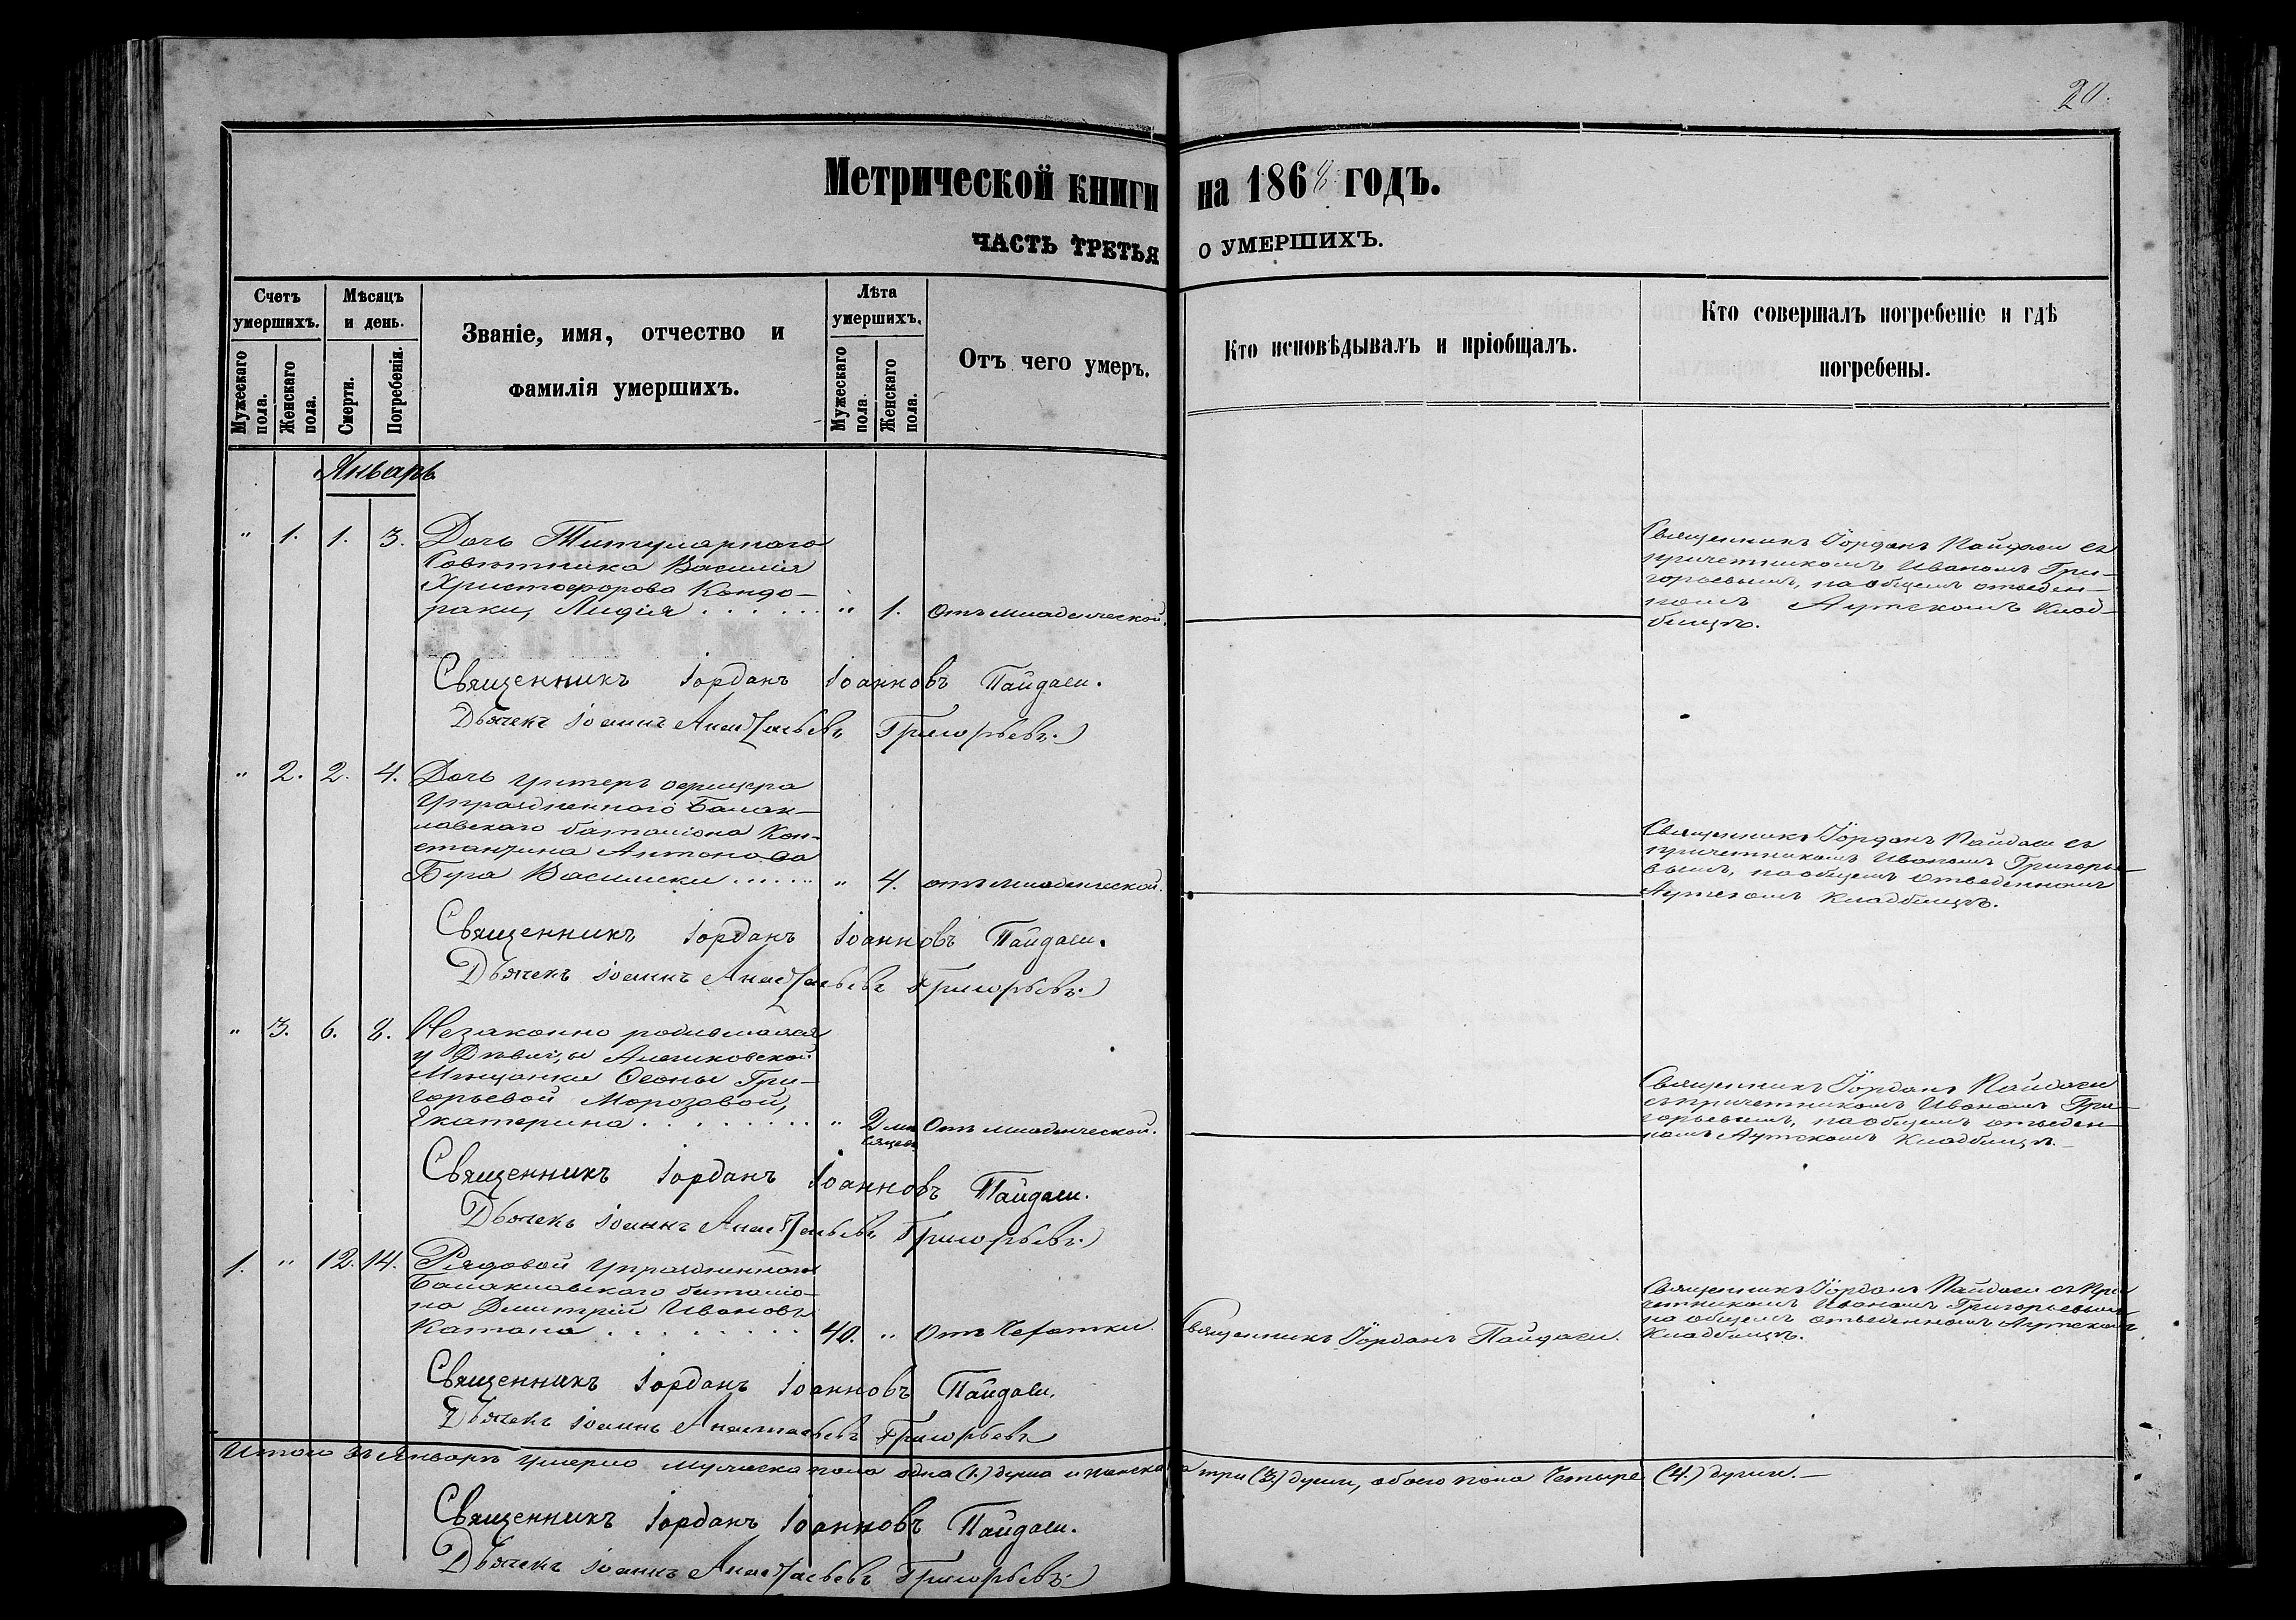 20.
Метрической книги на 1868 годъ.
ЧАСТЬ ТРЕТЬЯ О УМЕРШИХЪ.
Счетъ умершихъ.
Мужескаго пола.
Женскаго пола.
Мѣсяцъ и день.
Смерти.
Погребенія.
Званіе, имя, отчество и
фамилія умершихъ.
Лѣта умершихъ.
Мужескаго пола.
Женскаго пола.
Отъ чего умеръ.
Кто исповѣдывалъ и пріобщалъ.
Кто совершалъ погребеніе и гдѣ
погребены.
Январь
" 1. 1. 3. Дочь Титулярнаго
Совѣтника Василія
Христофорова Кондо-
раки, Лидія . . . . . . " 1. Отъ младенческой.
Священникъ Іорданъ Пайдаси съ
причетникомъ Иваномъ Гри-
горьевымъ, на общемъ отведен-
номъ Аутскомъ Клад-
бищѣ.
Священникъ Іорданъ Іоанновъ Пайдаси.
Дьячекъ Іоаннъ Анастасьевъ Григорьевъ
" 2. 2. 4. Дочь унтеръ офицера
Упраздненнаго Балак-
лавскаго баталіона Кон-
стантина Антонова
Бура Василики . . . . . . " 4. отъ младенческой.
Священникъ Іорданъ Пайдаси съ
причетникомъ Иваномъ Григорье-
вымъ, на общемъ отведенномъ
Аутскомъ Кладбищѣ.
Священникъ Іорданъ Іоанновъ Пайдаси.
Дьячекъ Іоаннъ Анастасьевъ Григорьевъ
" 3. 6. 8. Незаконно родившаяся
у Дѣвицы Алешковской
Мѣщанки Ѳеоны Гри-
горьевой Морозовой,
Екатерина . . . . . . . . . " 2 мѣ- Отъ младенческой.
сяцевъ
Священникъ Іорданъ Пайдаси
съ причетникомъ Иваномъ Гри-
горьевымъ, на общемъ отведен-
номъ Аутскомъ Кладбищѣ.
Священникъ Іорданъ Іоанновъ Пайдаси.
Дьячекъ Іоаннъ Анастасьевъ Григорьевъ
1. " 12. 14. Рядовой Упраздненнаго
Балаклавскаго баталіо-
на Димитрій Ивановъ
Катана . . . . . . . . 40. " Отъ Чахотки. Священникъ Іорданъ Пайдаси.
Священникъ Іорданъ Пайдаси съ при-
четникомъ Иваномъ Григорьевымъ
на общемъ отведенномъ Аутскомъ
Кладбищѣ.
Священникъ Іорданъ Іоанновъ Пайдаси.
Дьячекъ Іоаннъ Анастасьевъ Григорьевъ
Итого въ Январѣ умерло мужеска пола одна (1.) душа и женска три (3) души, обоего пола Четыре (4.) души. —
Священникъ Іорданъ Іоанновъ Пайдаси.
Дьячекъ Іоаннъ Анастасьевъ Григорьевъ